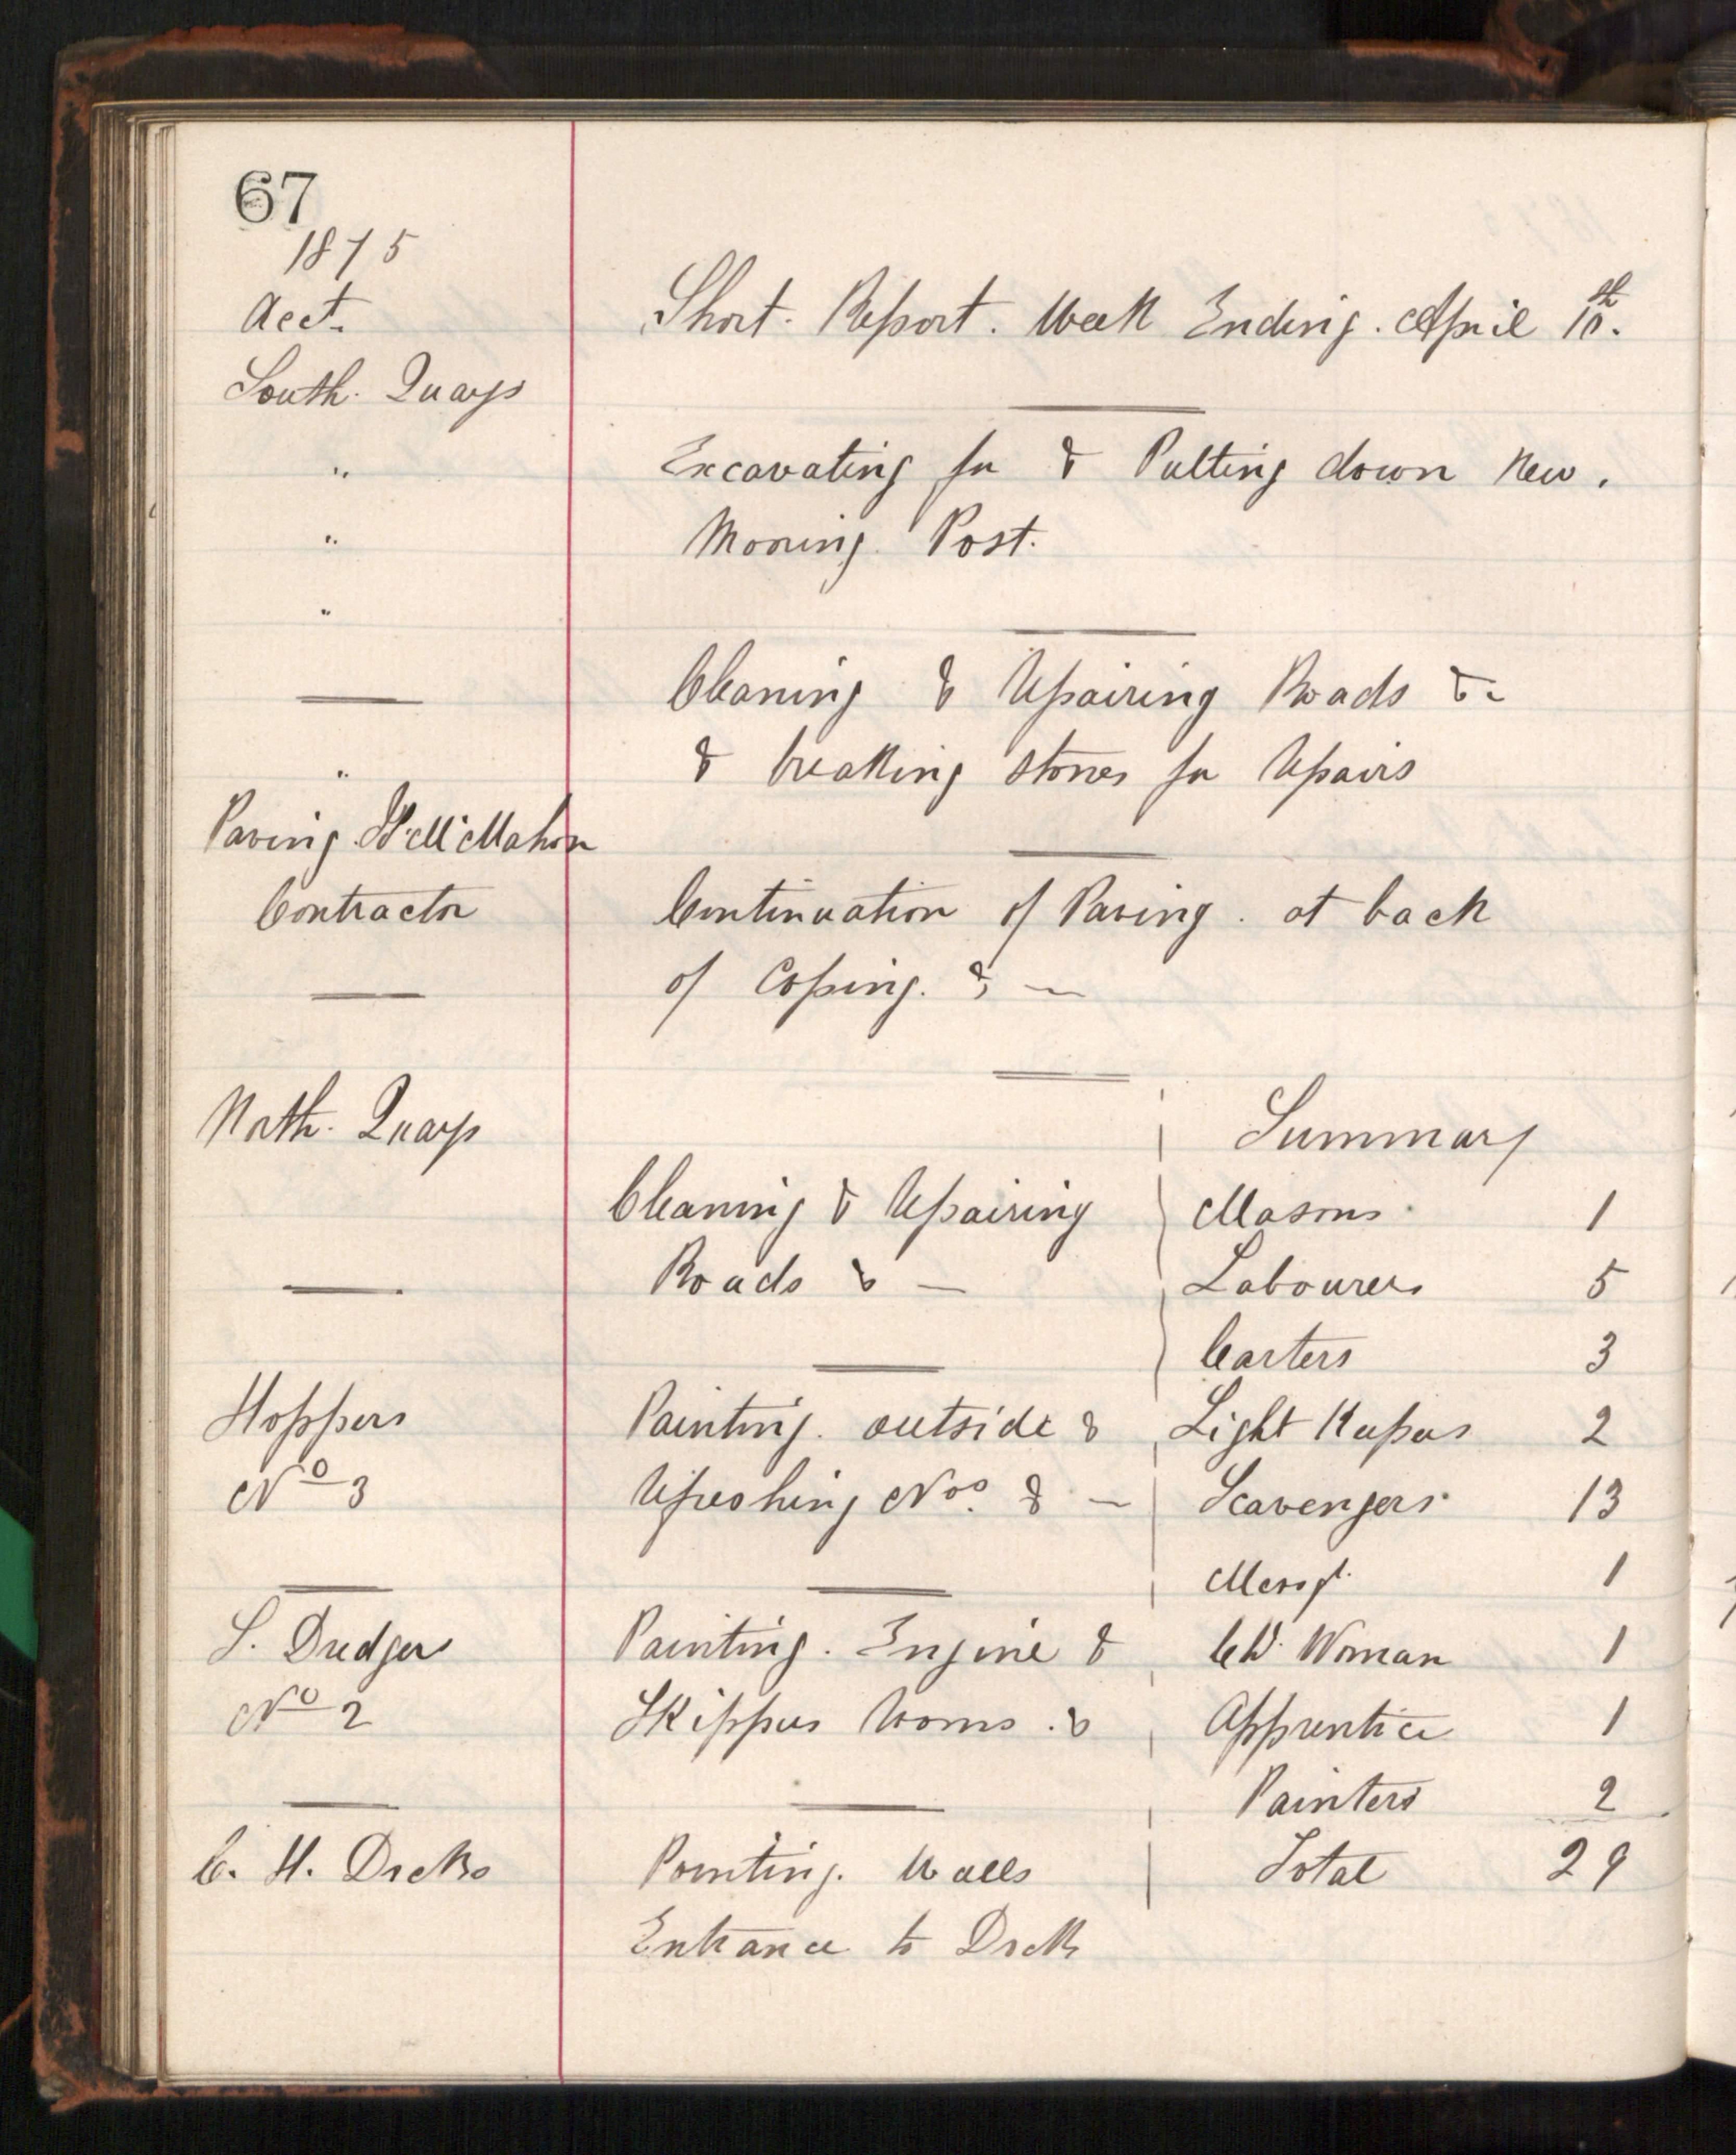 67
1875
Acct.
Short. Report. Week Ending. April 10th.
South. Quays
" Excavating for & Putting down new.
" Mooring Post.
"
Cleaning & repairing Roads &c
" & breaking stones for repairs
Paving. McMahon
Contractor Continuation of Paving. at back
of Coping. & —
North. Quays
Summary
Cleaning & repairing Masons 1
Roads & — Labourers 5
Carters 3
Hoppers Painting. outside & Light Keepers 2
No 3 refreshing Nos. & — Scavengers 13
Messr. 1
S. Dredger Painting. Engine & Ch. Woman 1
No 2 Skippers rooms. & Apprentice 1
Painters 2
C. H. Docks Pointing. Walls Total 29
Entrance to Dock